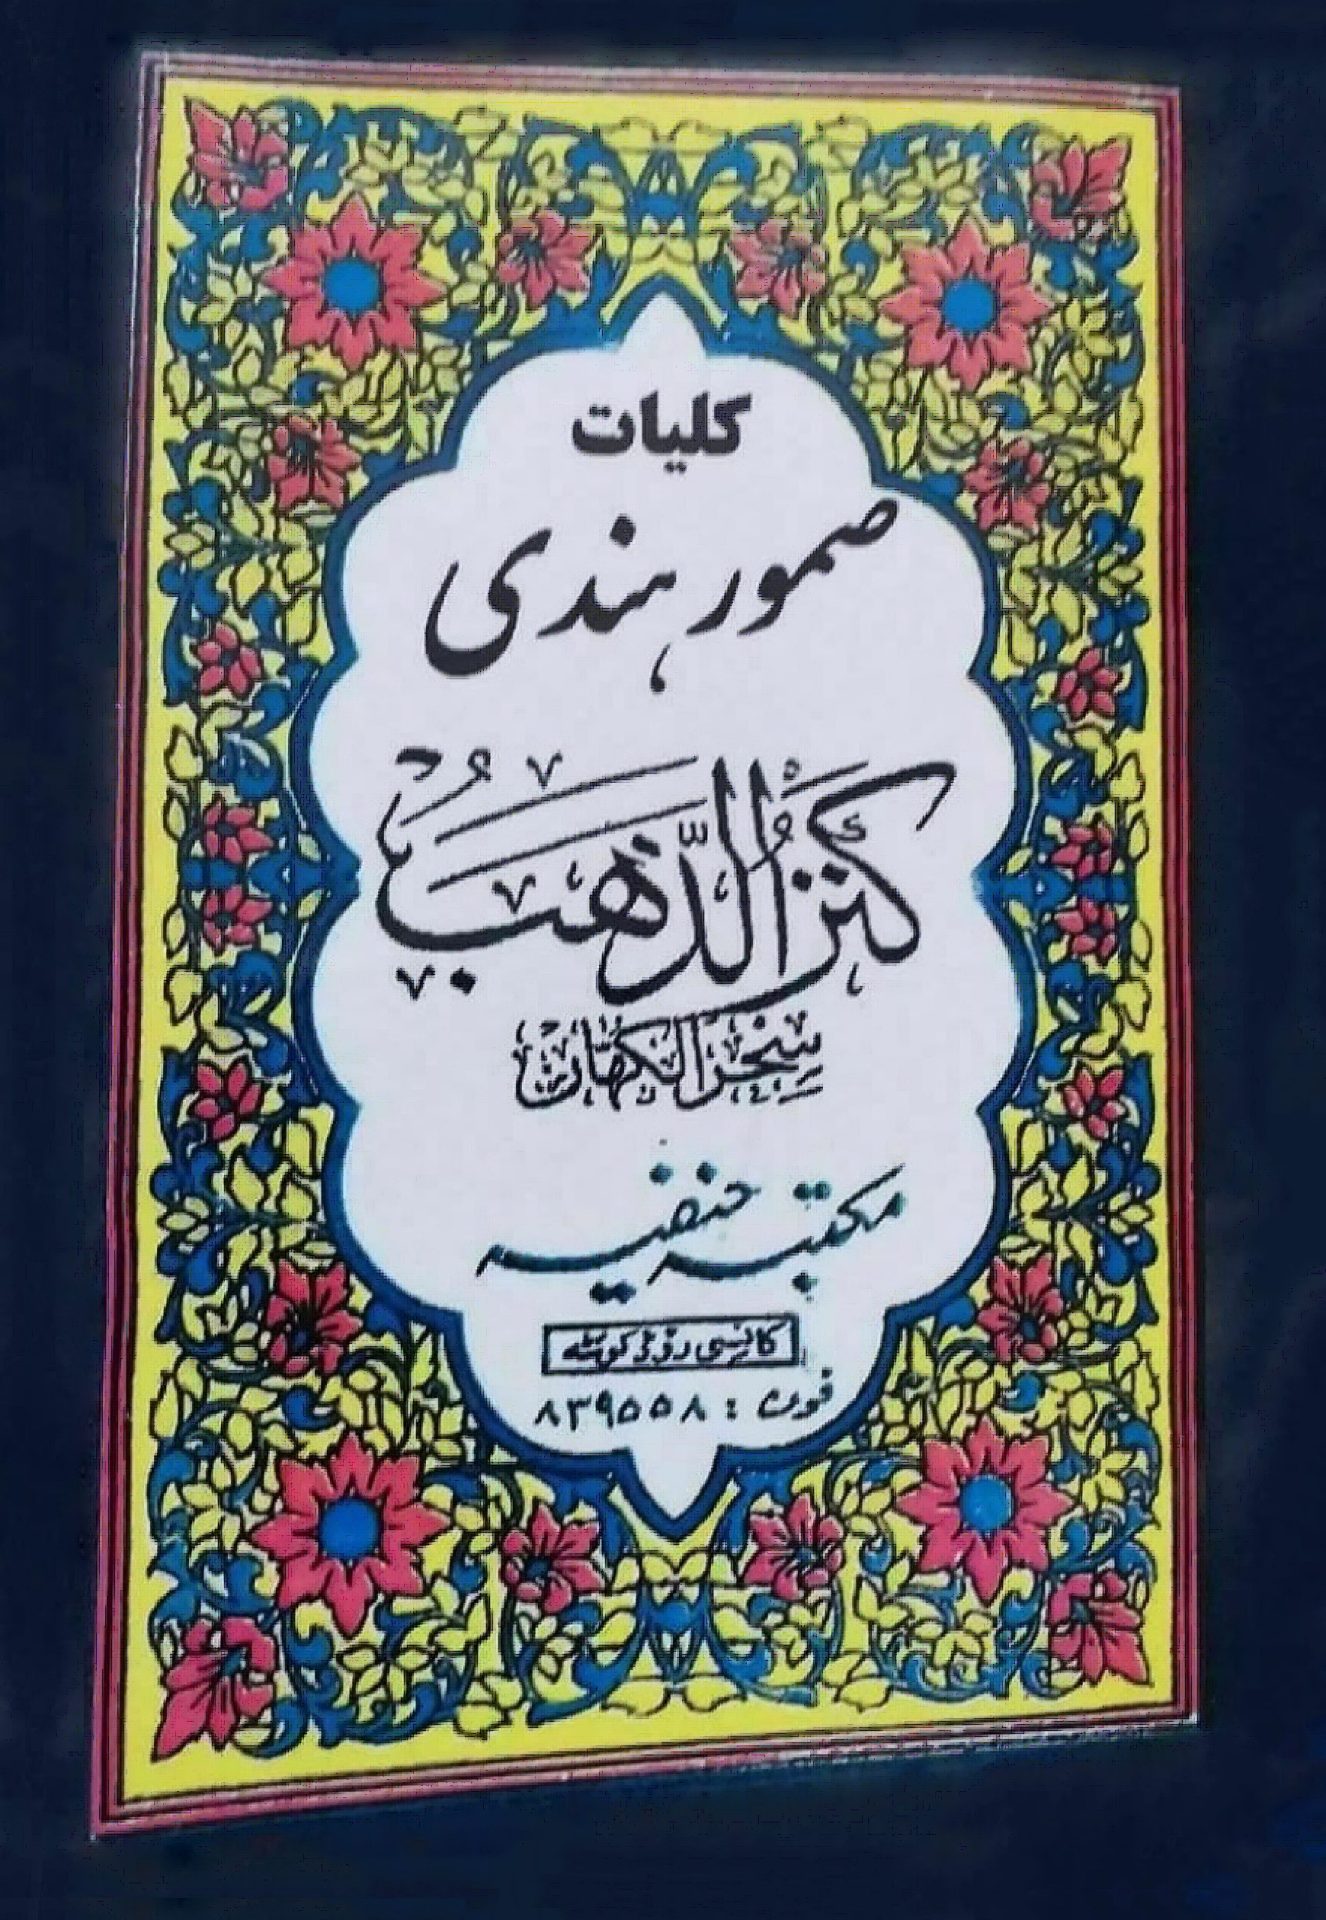 کلیات
صمور ہندی
کَنْزُ الذَّهَبُ
سِحْرُ الْکُهَّان
مکتبہ حنفیہ
کانسی روڈ کوئٹہ
فون : ۸۳۹۵۵۸